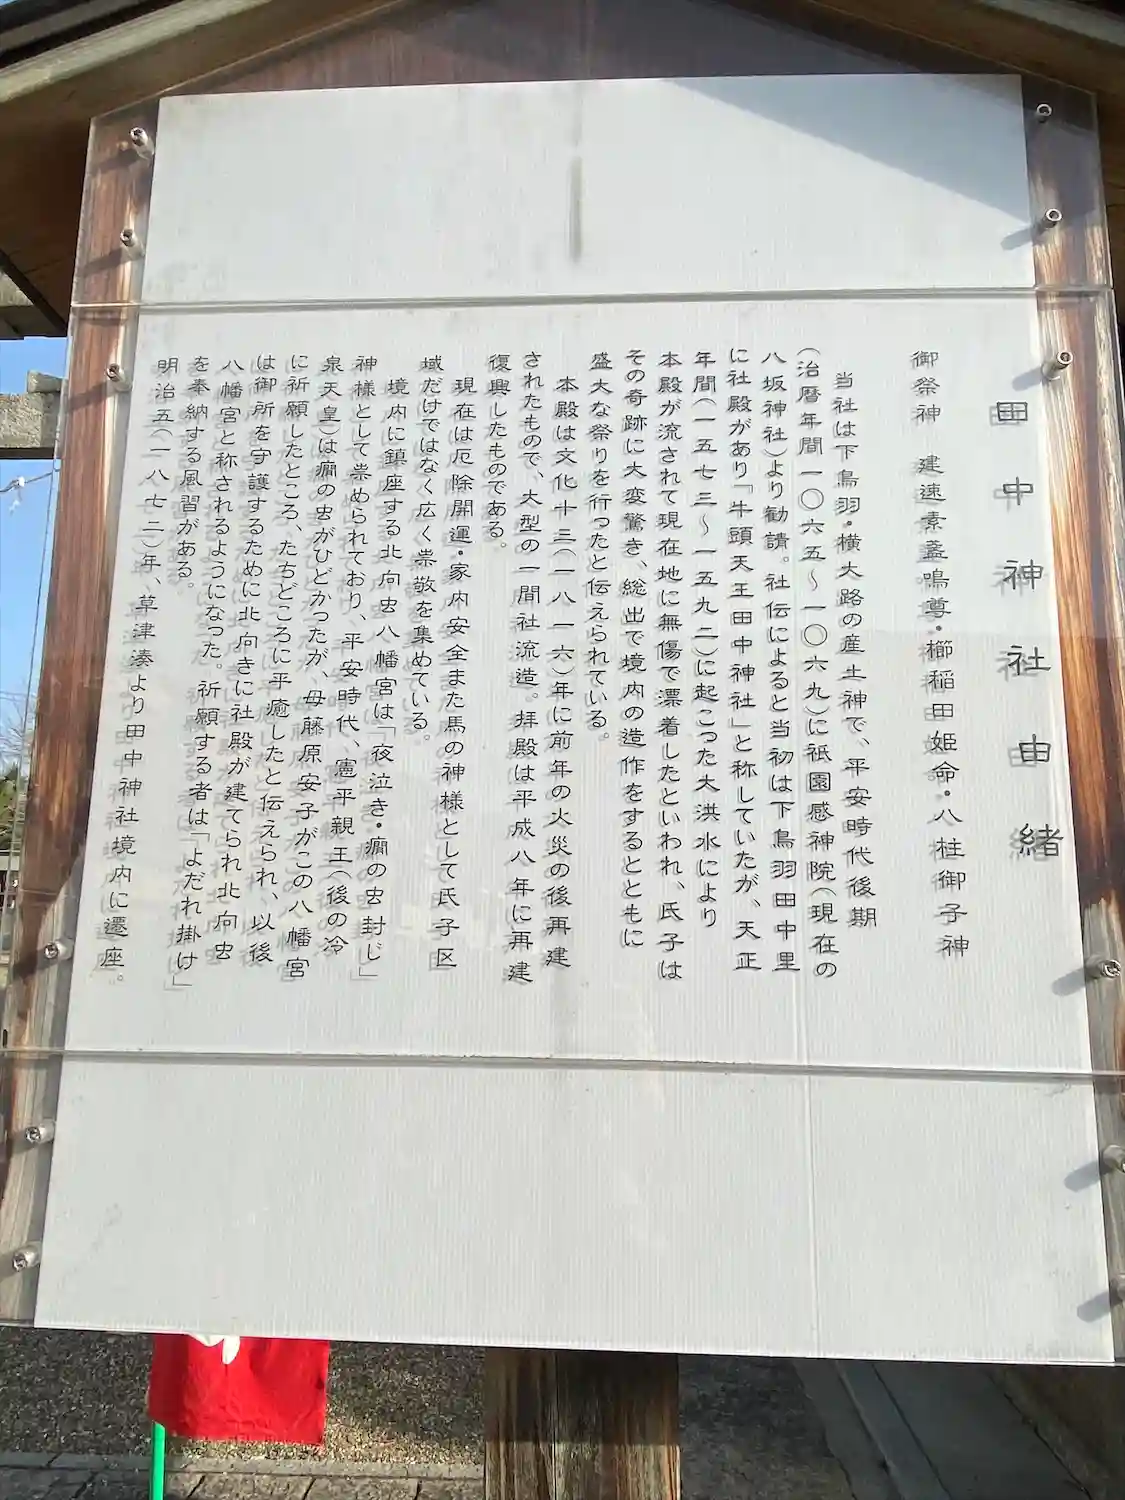 田中神社由緒
御祭神　建速素盞鳴尊・櫛稲田姫命・八柱御子神
当社は下鳥羽・横大路の産土神で、平安時代後期
(治暦年間一〇六五～一〇六九)に祇園感神院(現在の
八坂神社)より勧請。社伝によると当初は下鳥羽田中里
に社殿があり「牛頭天王田中神社」と称していたが、天正
年間(一五七三～一五九二)に起こった大洪水により
本殿が流されて現在地に無傷で漂着したといわれ、氏子は
その奇跡に大変驚き、総出で境内の造作をするとともに
盛大な祭りを行ったと伝えられている。
本殿は文化十三(一八一六)年に前年の火災の後再建
されたもので、大型の一間社流造。拝殿は平成八年に再建
復興したものである。
現在は厄除開運・家内安全また馬の神様として氏子区
域だけではなく広く崇敬を集めている。
境内に鎮座する北向虫八幡宮は「夜泣き・癇の虫封じ」
神様として崇められており、平安時代、憲平親王(後の冷
泉天皇)は癇の虫がひどかったが、母藤原安子がこの八幡宮
に祈願したところ、たちどころに平癒したと伝えられ、以後
は御所を守護するために北向きに社殿が建てられ北向虫
八幡宮と称されるようになった。祈願する者は「よだれ掛け」
を奉納する風習がある。
明治五(一八七二)年、草津湊より田中神社境内に遷座。